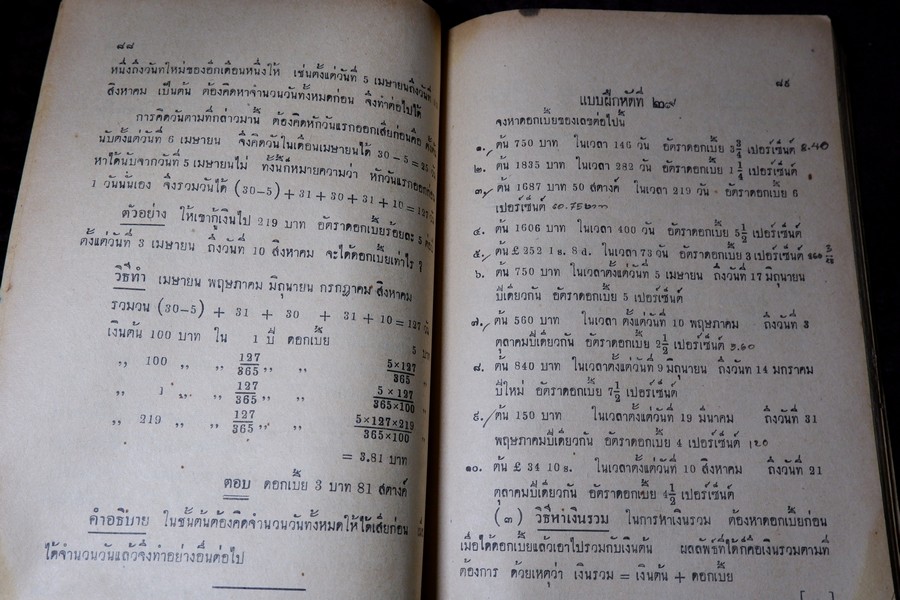 ๘๘
หนึ่งถึงวันทใหม่ของอีกเดือนหนึ่งให้ เช่นตั้งแต่วันที่ 5 เมษายนถึงวันที่
สิงหาคม เป็นต้น ต้องคิดหาจำนวนวันทั้งหมดก่อน จึงทำต่อไปได้
การคิดวันตามที่กล่าวมานี้ ต้องคิดหักวันแรกออกเสียก่อนคือ
นับตั้งแต่วันที่ 6 เมษายน จึงคิดวันในเดือนเมษายนได้ 30 – 5 = 25
หาได้นับจากวันที่ 5 เมษายนไม่ ทั้งนี้ก็หมายความว่า หักวันแรกออก
1 วันนั้นเอง จึงรวมวันได้ (30–5) + 31 + 30 + 31 + 10 = 127
ตัวอย่าง ให้เขากู้เงินไป 219 บาท อัตราดอกเบี้ยร้อยละ 5
ตั้งแต่วันที่ 3 เมษายน ถึงวันที่ 10 สิงหาคม จะได้ดอกเบี้ยเท่าไร ?
วิธีทำ เมษายน พฤษภาคม มิถุนายน กรกฎาคม สิงหาคม
รวมวัน (30–5) + 31 + 30 + 31 + 10 = 127 วัน
เงินต้น 100 บาท ใน 1 ปี ดอกเบี้ย 5 บาท
,, 100 ,, ,, 127/365 ,, ,, 5×127/365 ,,
,, 1 ,, ,, 127/365 ,, ,, 5×127/365×100 ,,
,, 219 ,, ,, 127/365 ,, ,, 5×127×219/365×100 ,,
= 3.81 บาท
ตอบ ดอกเบี้ย 3 บาท 81 สตางค์
คำอธิบาย ในชั้นต้นต้องคิดจำนวนวันทั้งหมดให้ได้เสียก่อน เมื่อ
ได้จำนวนวันแล้วจึงทำอย่างอื่นต่อไป
๘๙
แบบฝึกหัดที่ ๒๗
จงหาดอกเบี้ยของเลขต่อไปนี้
๑. ต้น 750 บาท ในเวลา 146 วัน อัตราดอกเบี้ย 3 3/4 เปอร์เซ็นต์
๒. ต้น 1835 บาท ในเวลา 282 วัน อัตราดอกเบี้ย 1 1/4 เปอร์เซ็นต์
๓. ต้น 1687 บาท 50 สตางค์ ในเวลา 219 วัน อัตราดอกเบี้ย 6
เปอร์เซ็นต์ ๖๐.75บาท
๔. ต้น 1606 บาท ในเวลา 400 วัน อัตราดอกเบี้ย 5 1/2 เปอร์เซ็นต์
๕. ต้น £ 252 1 s. 8 d. ในเวลา 73 วัน อัตราดอกเบี้ย 3 เปอร์เซ็นต์
๖. ต้น 750 บาท ในเวลาตั้งแต่วันที่ 5 เมษายน ถึงวันที่ 17 มิถุนายน
ปีเดียวกัน อัตราดอกเบี้ย 5 เปอร์เซ็นต์
๗. ต้น 560 บาท ในเวลา ตั้งแต่วันที่ 10 พฤษภาคม ถึงวันที่ 3
ตุลาคมปีเดียวกัน อัตราดอกเบี้ย 2 1/2 เปอร์เซ็นต์
๘. ต้น 840 บาท ในเวลาตั้งแต่วันที่ 9 มิถุนายน ถึงวันที่ 14 มกราคม
ปีใหม่ อัตราดอกเบี้ย 7 1/2 เปอร์เซ็นต์
๙. ต้น 150 บาท ในเวลาตั้งแต่วันที่ 19 มีนาคม ถึงวันที่ 31
พฤษภาคมปีเดียวกัน อัตราดอกเบี้ย 4 เปอร์เซ็นต์ 120
๑๐. ต้น £ 34 10 s. ในเวลาตั้งแต่วันที่ 10 สิงหาคม ถึงวันที่ 21
ตุลาคมปีเดียวกัน อัตราดอกเบี้ย 4 1/2 เปอร์เซ็นต์
(๓) วิธีหาเงินรวม ในการหาเงินรวม ต้องหาดอกเบี้ยก่อน
เมื่อได้ดอกเบี้ยแล้วเอาไปรวมกับเงินต้น ผลลัพธ์ที่ได้ก็คือเงินรวมตามที่
ต้องการ ด้วยเหตุว่า เงินรวม = เงินต้น + ดอกเบี้ย